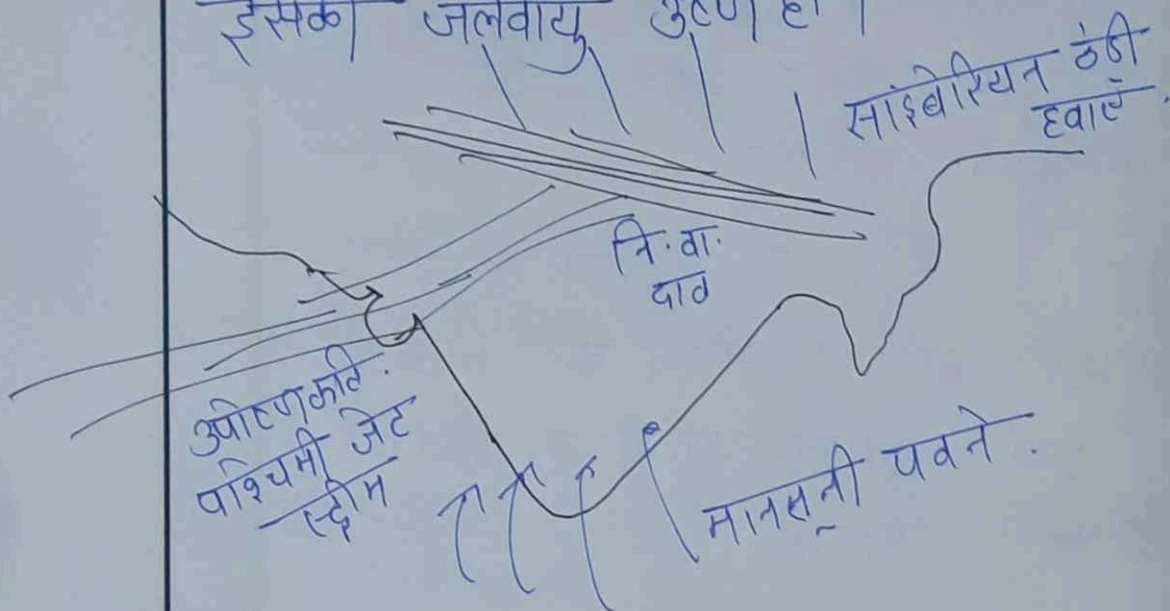 इसका जलवायु उष्ण है।
साइबेरियन ठंडी
हवाएँ.
नि. वा.
दाव
उपोष्णकटि.
पश्चिमी जेट
स्ट्रीम
मानसूनी पवने.